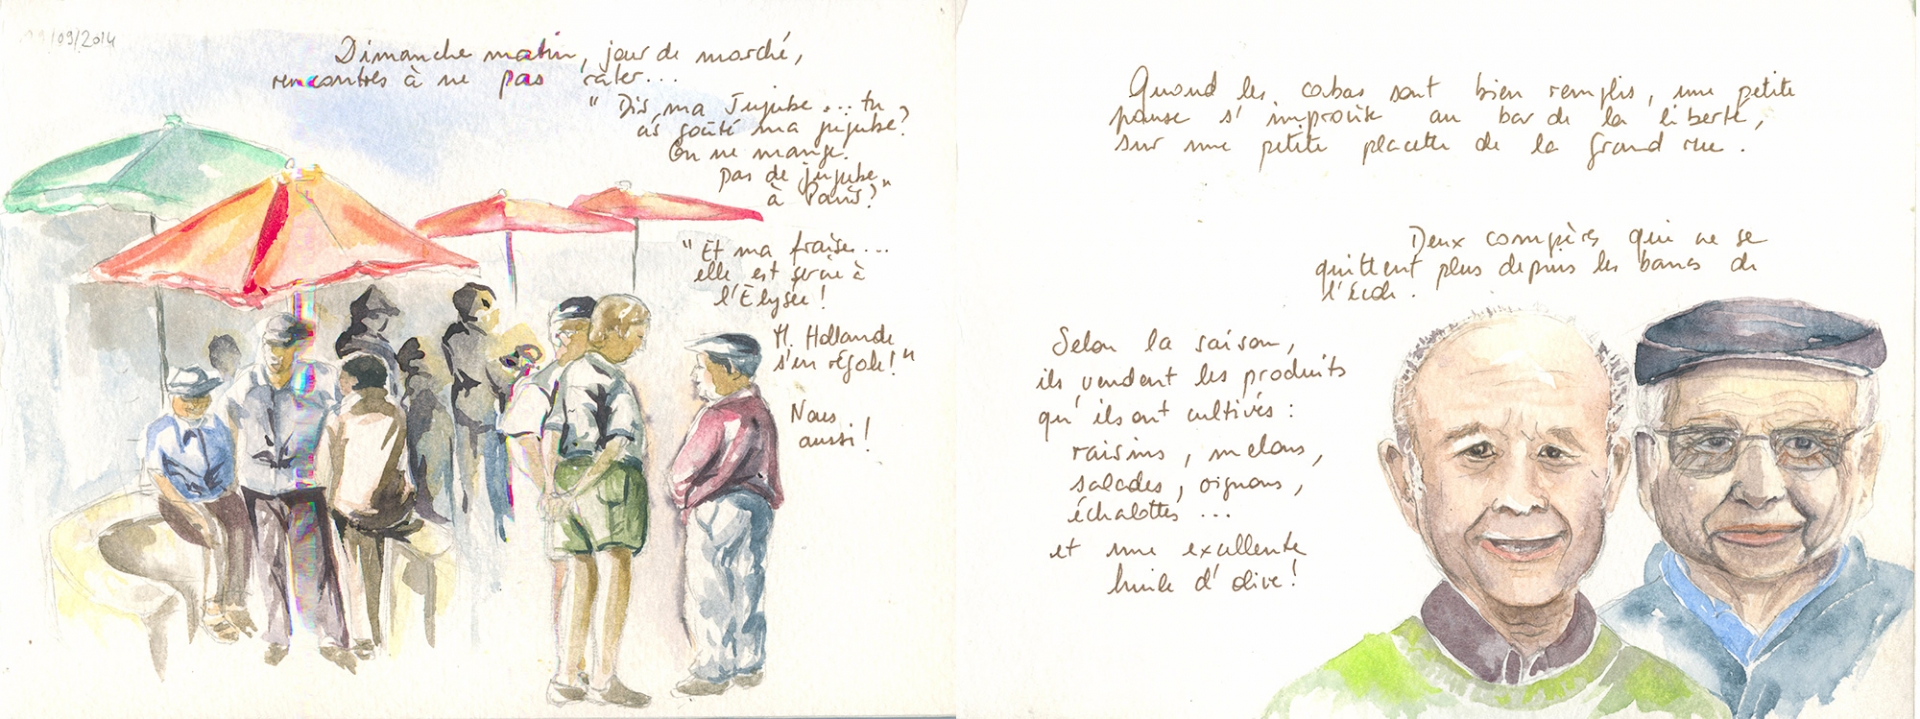 /09/2014
Dimanche matin, jour de marché,
rencontres à ne pas rater...
" Dis, ma Jujube... tu
as goûté ma jujube?
On ne mange.
pas de jujube
à Paris?"
"Et ma fraise...
elle est servie à
l'Elysée!
M. Hollande
s'en régale!"
Nous
aussi!
Quand les cabas sont bien remplis, une petite
pause s'improvise au bar de la liberté,
sur une petite placette de la Grand rue.
Deux compères qui ne se
quittent plus depuis les bancs de
l'école.
Selon la saison,
ils vendent les produits
qu'ils ont cultivés :
raisins, melons,
salades, oignons,
échalottes ...
et une excellente
huile d'olive!